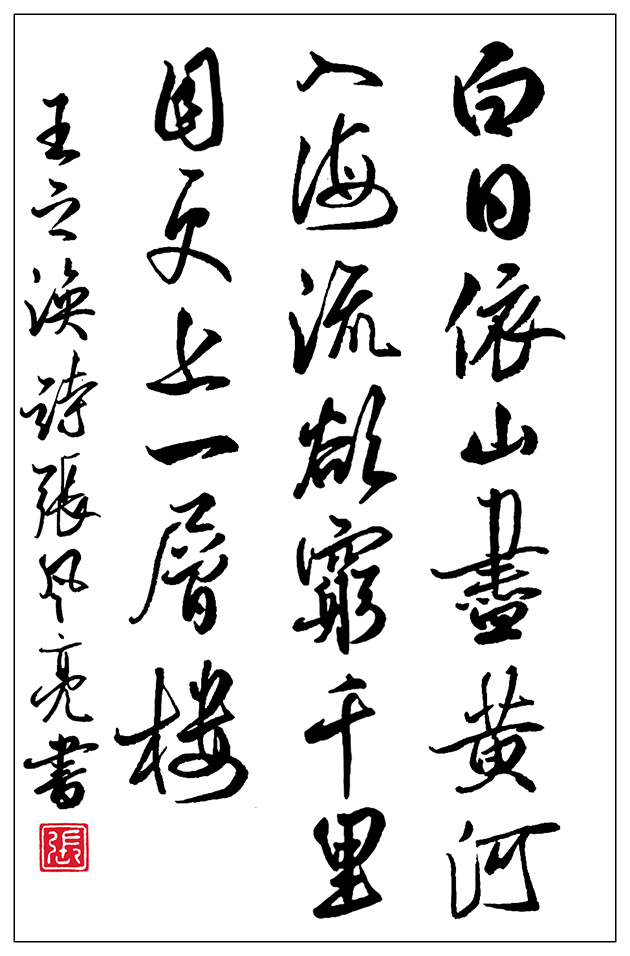 白日依山盡黄河
入海流欲窮千里
目更上一層楼
王之渙詩張亮書
張